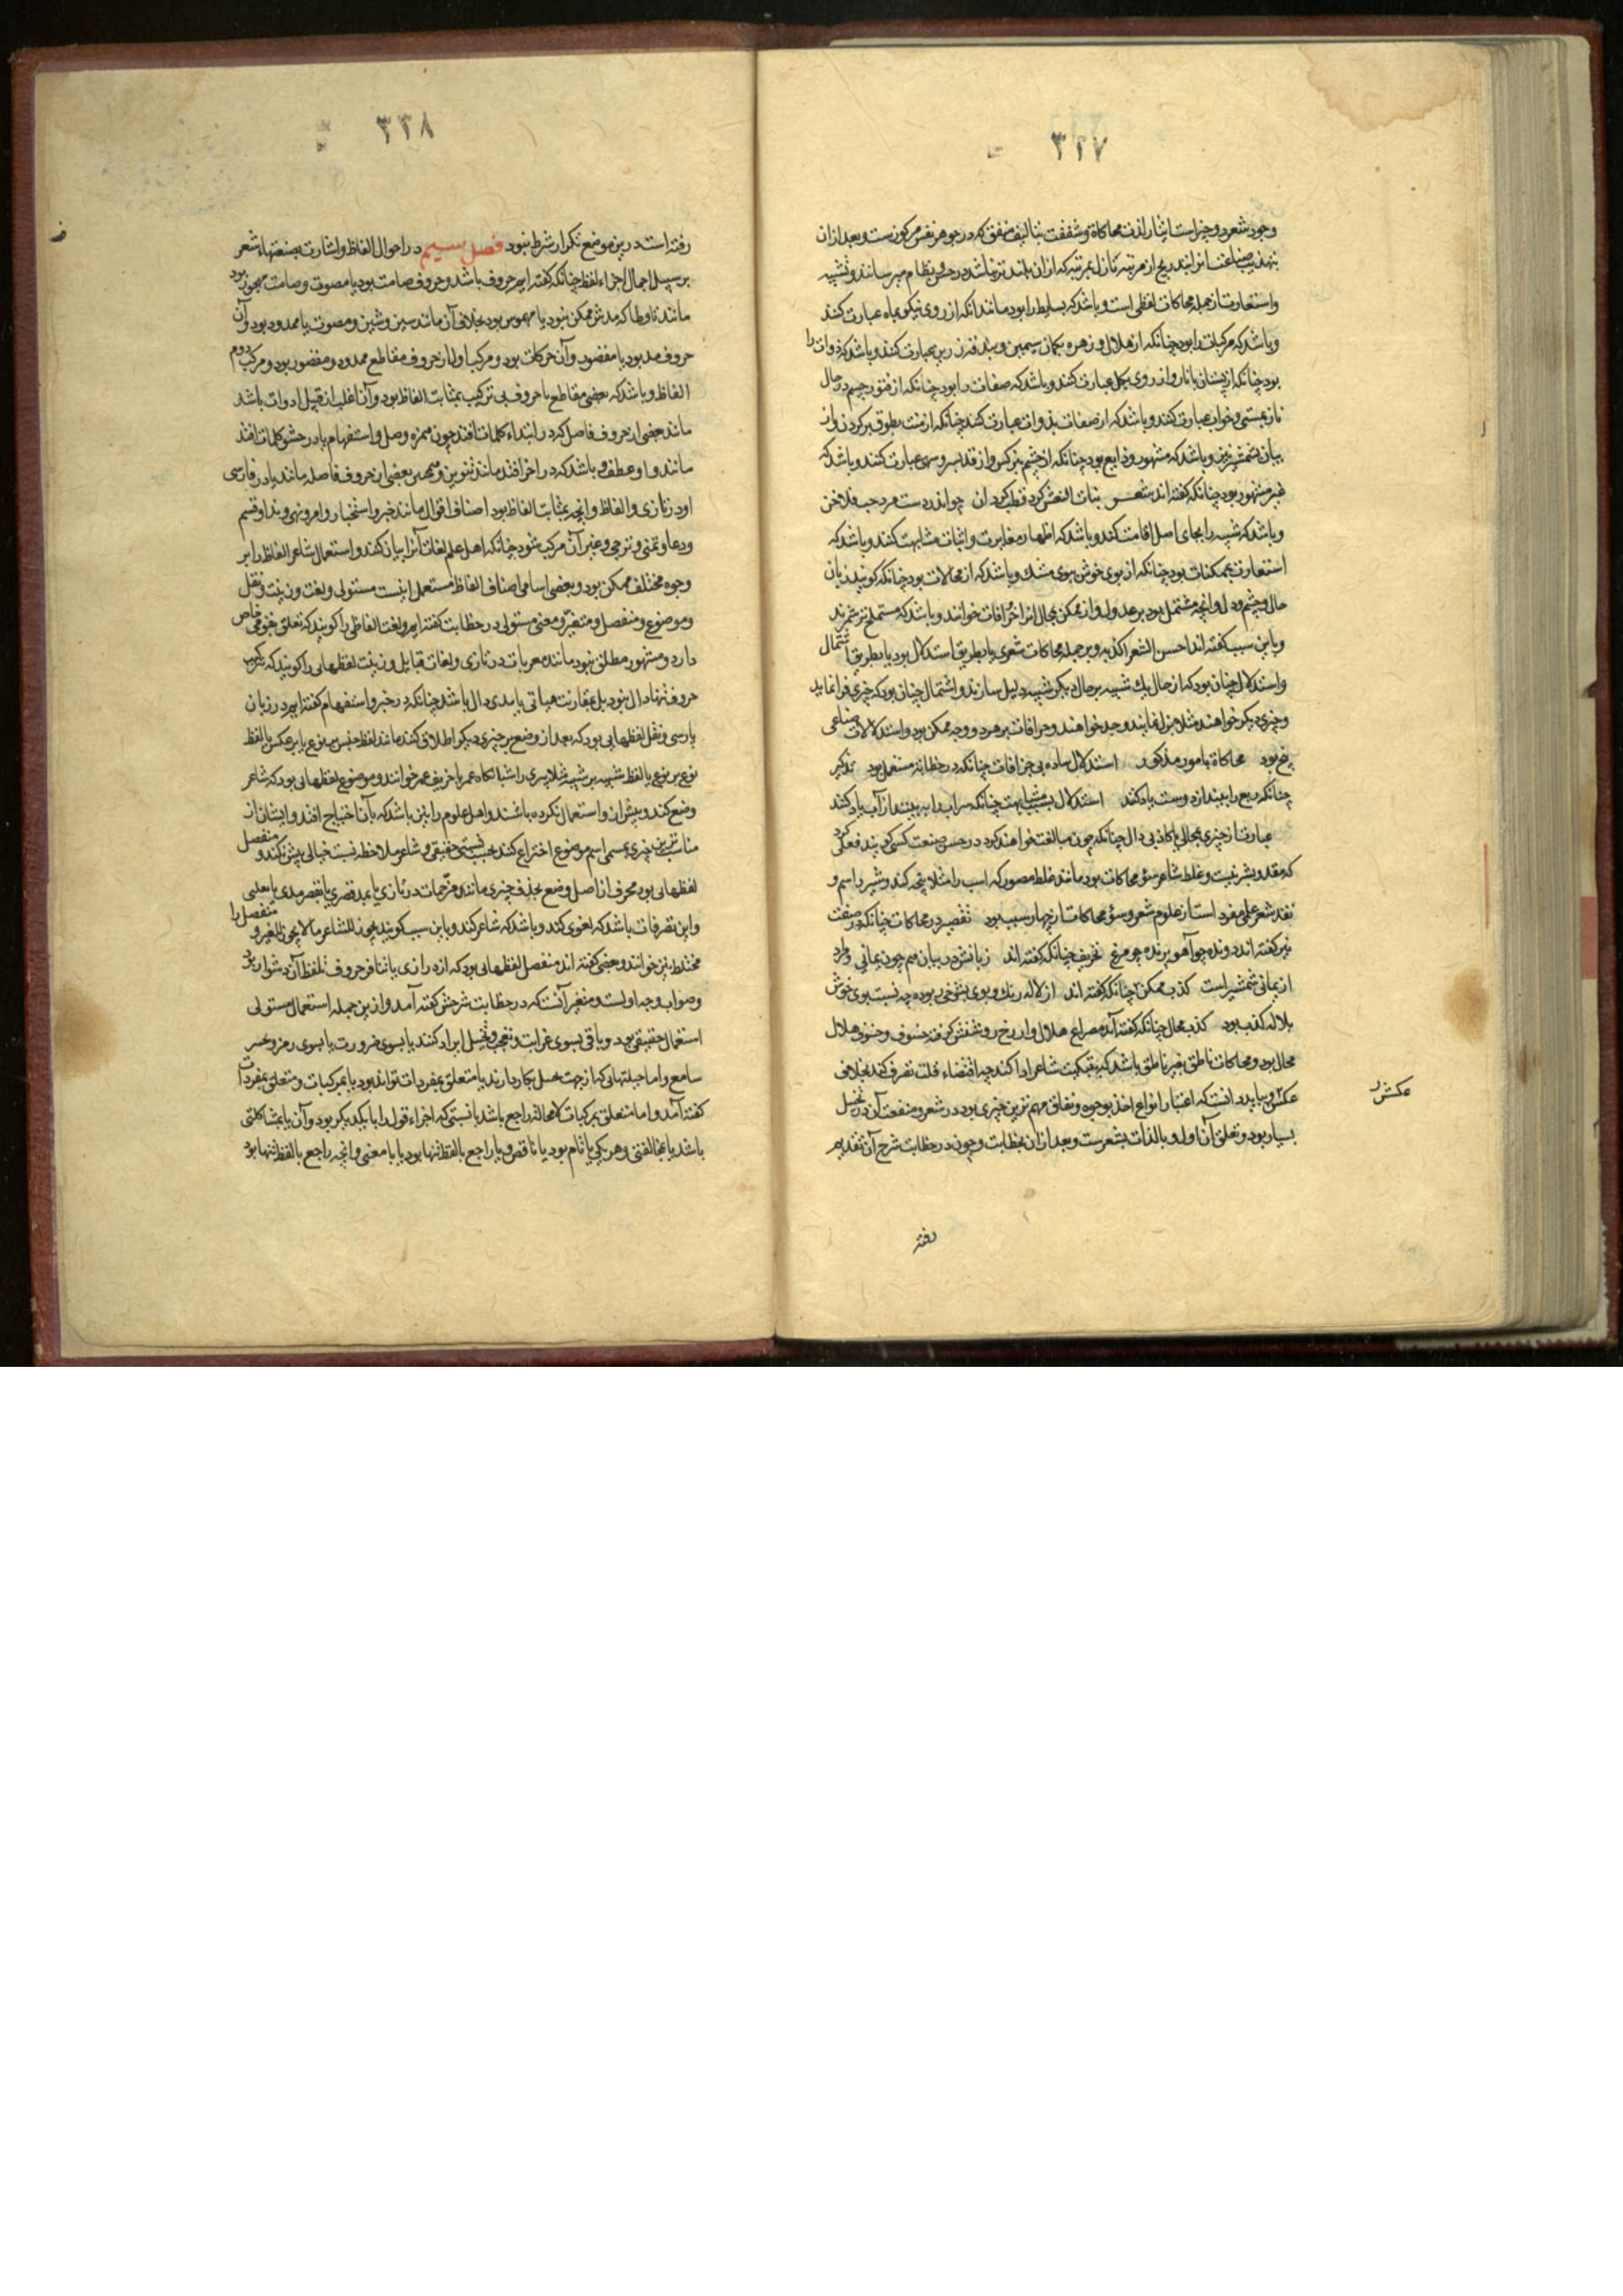 ٣٢٧
وجود شعر دو چیز است ایثار لذت محاکاة و شففت بتالیف متفق که در جوهر نفس مرکوزست و بعد از آن
بتهذیب صناعت انرا بتدریج از مرتبه نازل بمرتبه که از آن بلندتر نباشد در حسن نظام میرسانند و تشبیه
و استعارت از جمله محاکات لفظی است و باشد که بسایط را بود مانند انکه از روی نیکو بماه عبارت کنند
و باشد که مرکبات را بود چنانکه از هلال و زهره بکمان سیمین و بندقه زرین عبارت کنند و باشد که ذوات را
بود چنانکه از پستان بانار و از روی بکل عبارت کنند و باشد که صفات را بود چنانکه از فتور چشم در حال
ناز بمستی و خواب عبارت کنند و باشد که از صفات بذوات عبارت کنند چنانکه از منت بطوق بر کردن و از
بیان بشمشیر تیز و باشد که مشهور و ذایع بود چنانکه از چشم بنرکس و از قد بسرو سهی عبارت کنند و باشد که
غیر مشهور بود چنانکه کفته اند شعر بنات النعش کرد قطب کردان چو اندر دست مرد چپ فلاخن
و باشد که شبیه را بجای اصل اقامت کنند و باشد که اظهار مغایرت و اثبات مشابهت کنند و باشد که
استعارت بممکنات بود چنانکه از بوی خوش ببوی مشک و باشد که از محالات بود چنانکه کویند زبان
حال و چشم دل و انچه مشتمل بود بر عدول و از ممکن بمحال انرا خرافات خوانند و باشد که مستملح تر شمرند
و باین سبب کفته اند احسن الشعر اکذبه و بر جمله محاکات شعری یا بطریق استدلال بود یا بطریق اشتمال
و استدلال چنان بود که از حال یک شبیه بر حال دیکر شبیه دلیل سازند و اشتمال چنان بود که چیزی فرا نماید
و چیزی دیکر خواهند مثلا هزل نمایند و جد خواهند و خرافات بر هر دو وجه ممکن بود و استدلالات صناعی
پنج بود محاکاة بامور مذکور استدلال ساده بی خرافات چنانکه در خطابه مستعمل بود تذکیر
چنانکه ربع را بیند از دوست یاد کند استدلال بسبب مشابهت چنانکه سراب را ببیند از آب یاد کند
عبارت از چیزی بمحالی یا کاذبی دال چنانکه چون مبالغت خواهند کرد در حسن صنعت کسی کویند فعلی کرد
که مقدور بشر نیست و غلط شاعر سوء محاکات بود مانند غلط مصور که اسب را مثلا پنجه کند و شیر را سم و
نقد شعر علمی مفرد است از علوم شعر و سوء محاکات از چهار سبب بود تقصیر در محاکات چنانکه در صفت
تیر کفته اند دونده چو آهو پرنده چو مرغ تحریف چنانکه کفته اند زبانش در بیان هم چون یمانی و مراد
از یمانی شمشیر است کذب ممکن چنانکه کفته اند از لاله رنک و بوی بشوخی ربوده چه نسبت بوی خوش
بلاله کذب بود کذب محال چنانکه کفته اند مصراع هلال وار رخ روشنش کرفته خسوف و خسوف هلال
محال بود و محاکات ناطق بغیر ناطق باشد که بتبکیت شاعر ادا کند چه اقتضاء قلت تصرف کند بخلاف
عکسش و بباید دانست که اعتبار انواع اخذ بوجوه و نفاق مهم ترین چیزی بود در شعر و منفعت آن در تخییل
بسیار بود و تعلق آن اولا و بالذات بشعرست و بعد از آن بخطابت و چون در خطابت شرح آن تقدیم
عکسش
رفته
٣٣٨
رفته است درین موضع تکرار شرط نبود فصل سیم در احوال الفاظ و اشارت بصنعتهاء شعر
بر سبیل اجمال اجزاء لفظ چنانکه کفته ایم حروف باشد و حروف صامت بود یا مصوت و صامت مجهور بود
مانند تا و طا که مدش ممکن نبود یا مهموس بود بخلاف آن مانند سین و شین و مصوت یا ممدود بود و آن
حروف مد بود یا مقصور و آن حرکات بود و مرکب اول از حروف مقاطع ممدود و مقصور بود و مرکب دوم
الفاظ و باشد که بعضی مقاطع یا حروف بی ترکیب بمثابت الفاظ بود و آن اغلب از قبیل ادوات باشد
مانند بعضی از حروف فاصل که در ابتداء کلمات افتد چون همزه وصل و استفهام یا در حشو کلمات افتد
مانند واو عطف و باشد که در اخر افتد مانند تنوین و بعضی از حروف فاصله مانند یا در فارسی
اود رتازی و الفاظ و انچه بمثابت الفاظ بود اصناف اقوال مانند خبر و استخبار و امر و نهی و ندا و قسم
و دعا و تمنی و ترجی و غیر آن مرکب شود چنانکه اهل علم لغات آنرا بیان کنند و استعمال شاعر الفاظ را بر
وجوه مختلف ممکن بود و بعضی اسامی اصناف الفاظ مستعمل اینست مستولی و لغت و زینت و نقل
و موضوع و منفصل و متغیر و معنی مستولی در خطابت کفته ایم و لغت الفاظی را کویند که تعلق بقومی خاص
دارد و مشهور مطلق نبود مانند معربات در تازی و لغات قبایل و زینت لفظهایی را کویند که بترکیب
حروف تنها دال نبود بل بمقارنت هیاتی یا مدی دال باشد چنانکه در خبر و استفهام کفته ایم در زبان
پارسی و نقل لفظهایی بود که بعد از وضع بر چیزی دیکر اطلاق کنند مانند لفظ جنس بر نوع یا بر عکس یا لفظ
نوع بر نوع یا لفظ شبیه بر شبیه مثلا پیری را شبانکاه عمر یا خریف عمر خوانند و موضوع لفظهایی بود که شاعر
وضع کند و پیش از او استعمال نکرده باشند و اهل علوم را این باشد که بآن احتیاج افتد و ایشان از
مناسب ترین چیزی بمسمی اسم موضوع اختراع کند بحسب نسبتی حقیقی و شاعر ملاحظه نسبت خیالی پیش نکند و منفصل
لفظهایی بود محرف از اصل وضع بحذف چیزی مانند مرخمات در تازی یا بمد قصری یا بقصر مدی یا بقلبی
و این تصرفات باشد که لغوی کند و باشد که شاعر کند و باین سبب کویند یجوز للشاعر ما لا یجوز لغیره و منفصل را
مختلط نیز خوانند و بعضی کفته اند منفصل لفظهایی بود که از درازی یا تنافر حروف تلفظ آن دشوار بود
و صواب وجه اولست و متغیر آنست که در خطابت شرحش کفته آمد و از این جمله استعمال مستولی
استعمال حقیقی بود و باقی بسوی غرابت و تعجب و تخییل ایراد کنند یا بسوی ضرورت یا بسوی رمز و
سامع و اما حیلتهایی که از جهت تخییل بکار دارند یا متعلق بمفردات تواند بود یا بمرکبات و متعلق بمفردات
کفته آمد و اما متعلق بمرکبات لا محاله راجع باشد با نسبتی که اجزاء قول را با یکدیکر بود و آن یا بمشاکلتی
باشد یا بمخالفتی و هر یکی یا تام بود یا ناقص و یا راجع با لفظ تنها بود یا با معنی و انچه راجع با لفظ تنها بود